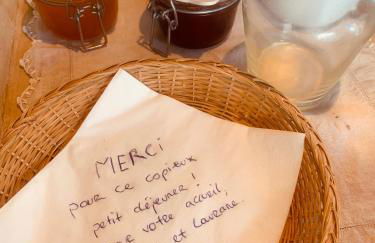 MERCI
pour ce copieux
petit déjeuner!
votre accueil,
et Laurane.